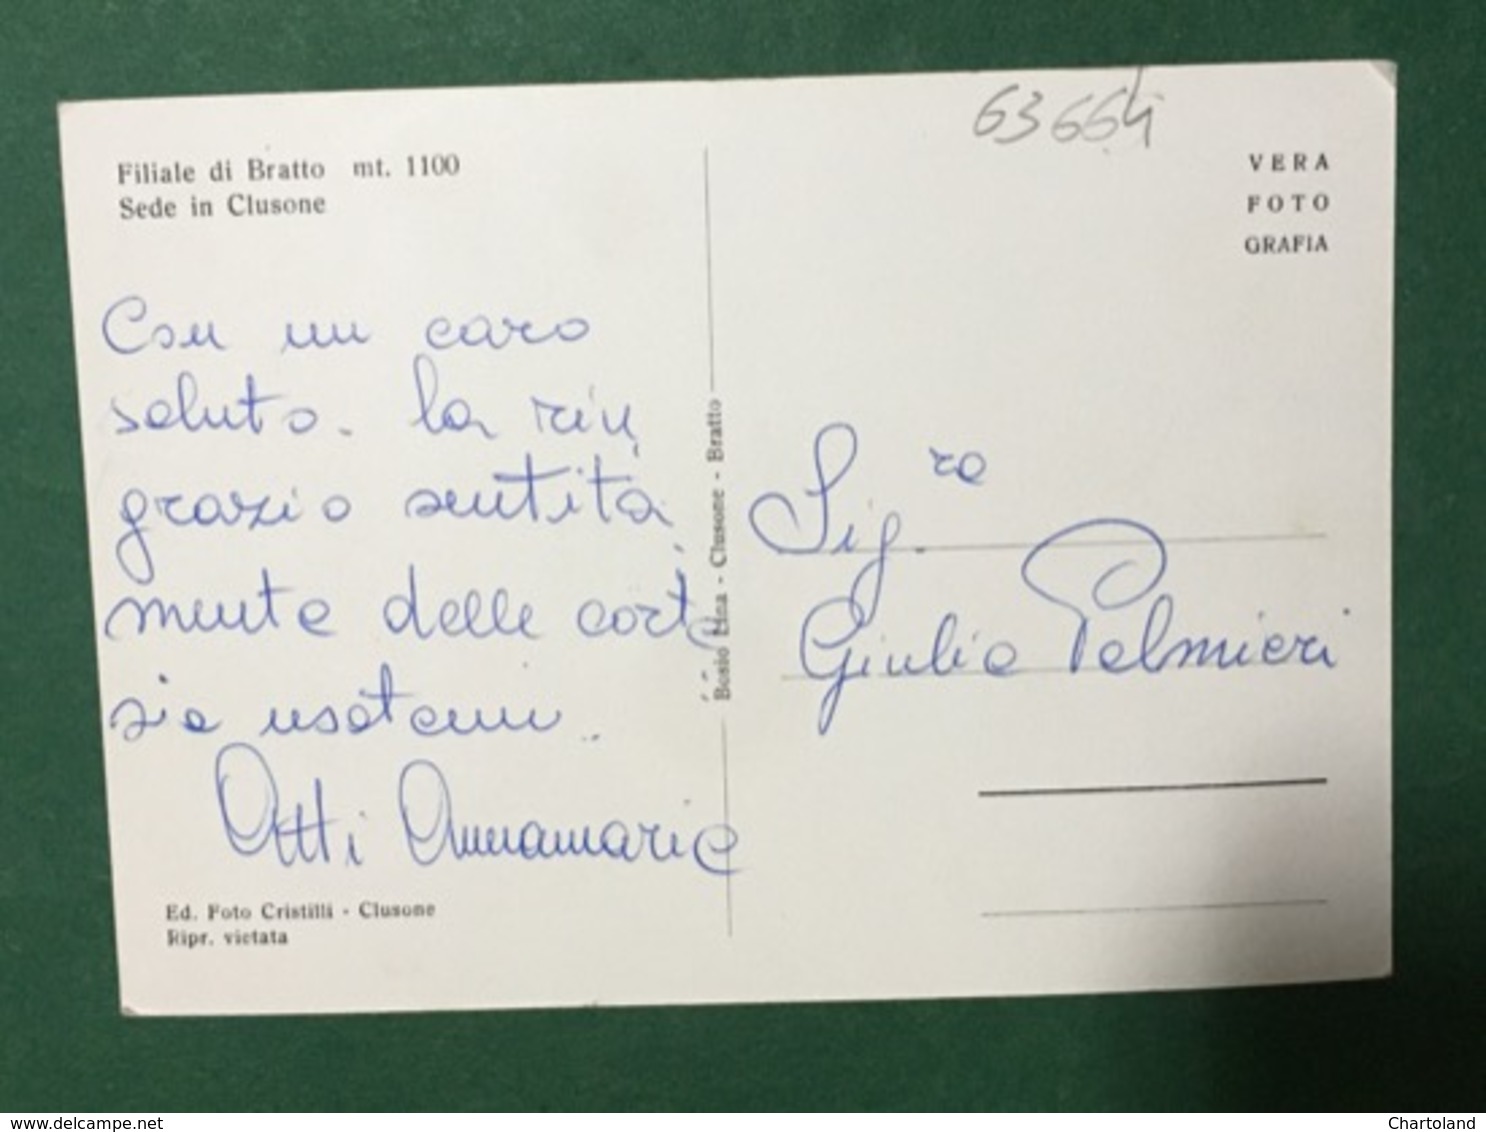 63664
Filiale di Bratto mt. 1100
Sede in Clusone
VERA
FOTO
GRAFIA
Con un caro
saluto. la rin
grazio sentita
mente delle corte
sie usatemi.
Otti Annamaria
Ed. Foto Cristilli - Clusone
Ripr. vietata
Bosio Lina - Clusone - Bratto
Sig.ra
Giulia Palmieri
www.delcampe.net
Chartoland